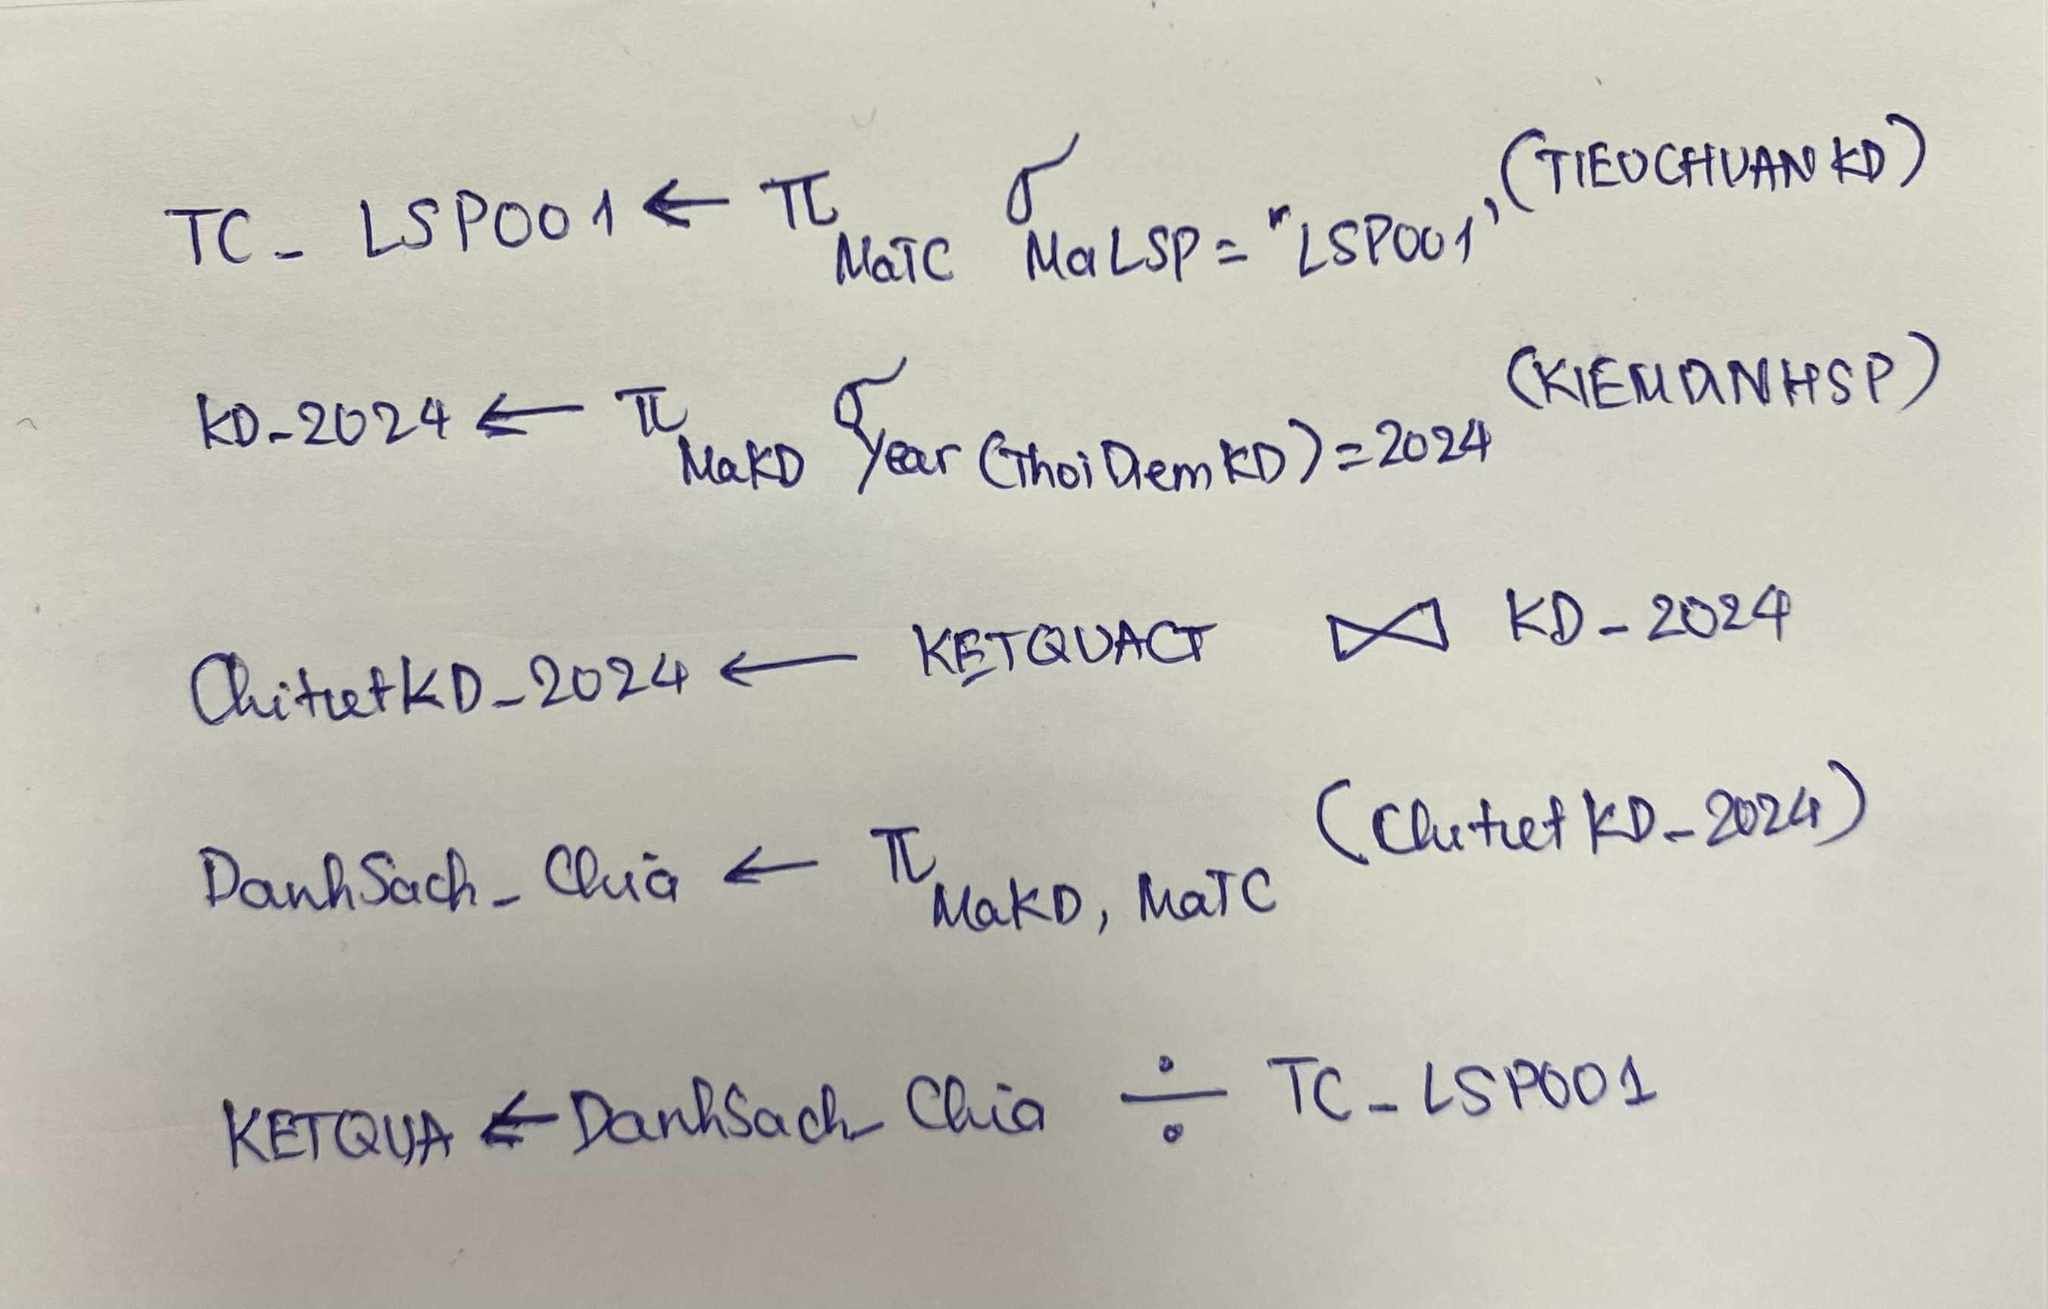 TC_ LSP001 ← π MaTC σ MaLSP = "LSP001" (TIEUCHUANKD)
KD_2024 ← π MaKD σ Year (ThoiDiemKD) = 2024 (KIEMDINHSP)
ChitietKD_2024 ← KETQUACT ⋈ KD_2024
DanhSach_Chia ← π MaKD, MaTC (ChitietKD_2024)
KETQUA ← DanhSach_Chia ÷ TC_LSP001